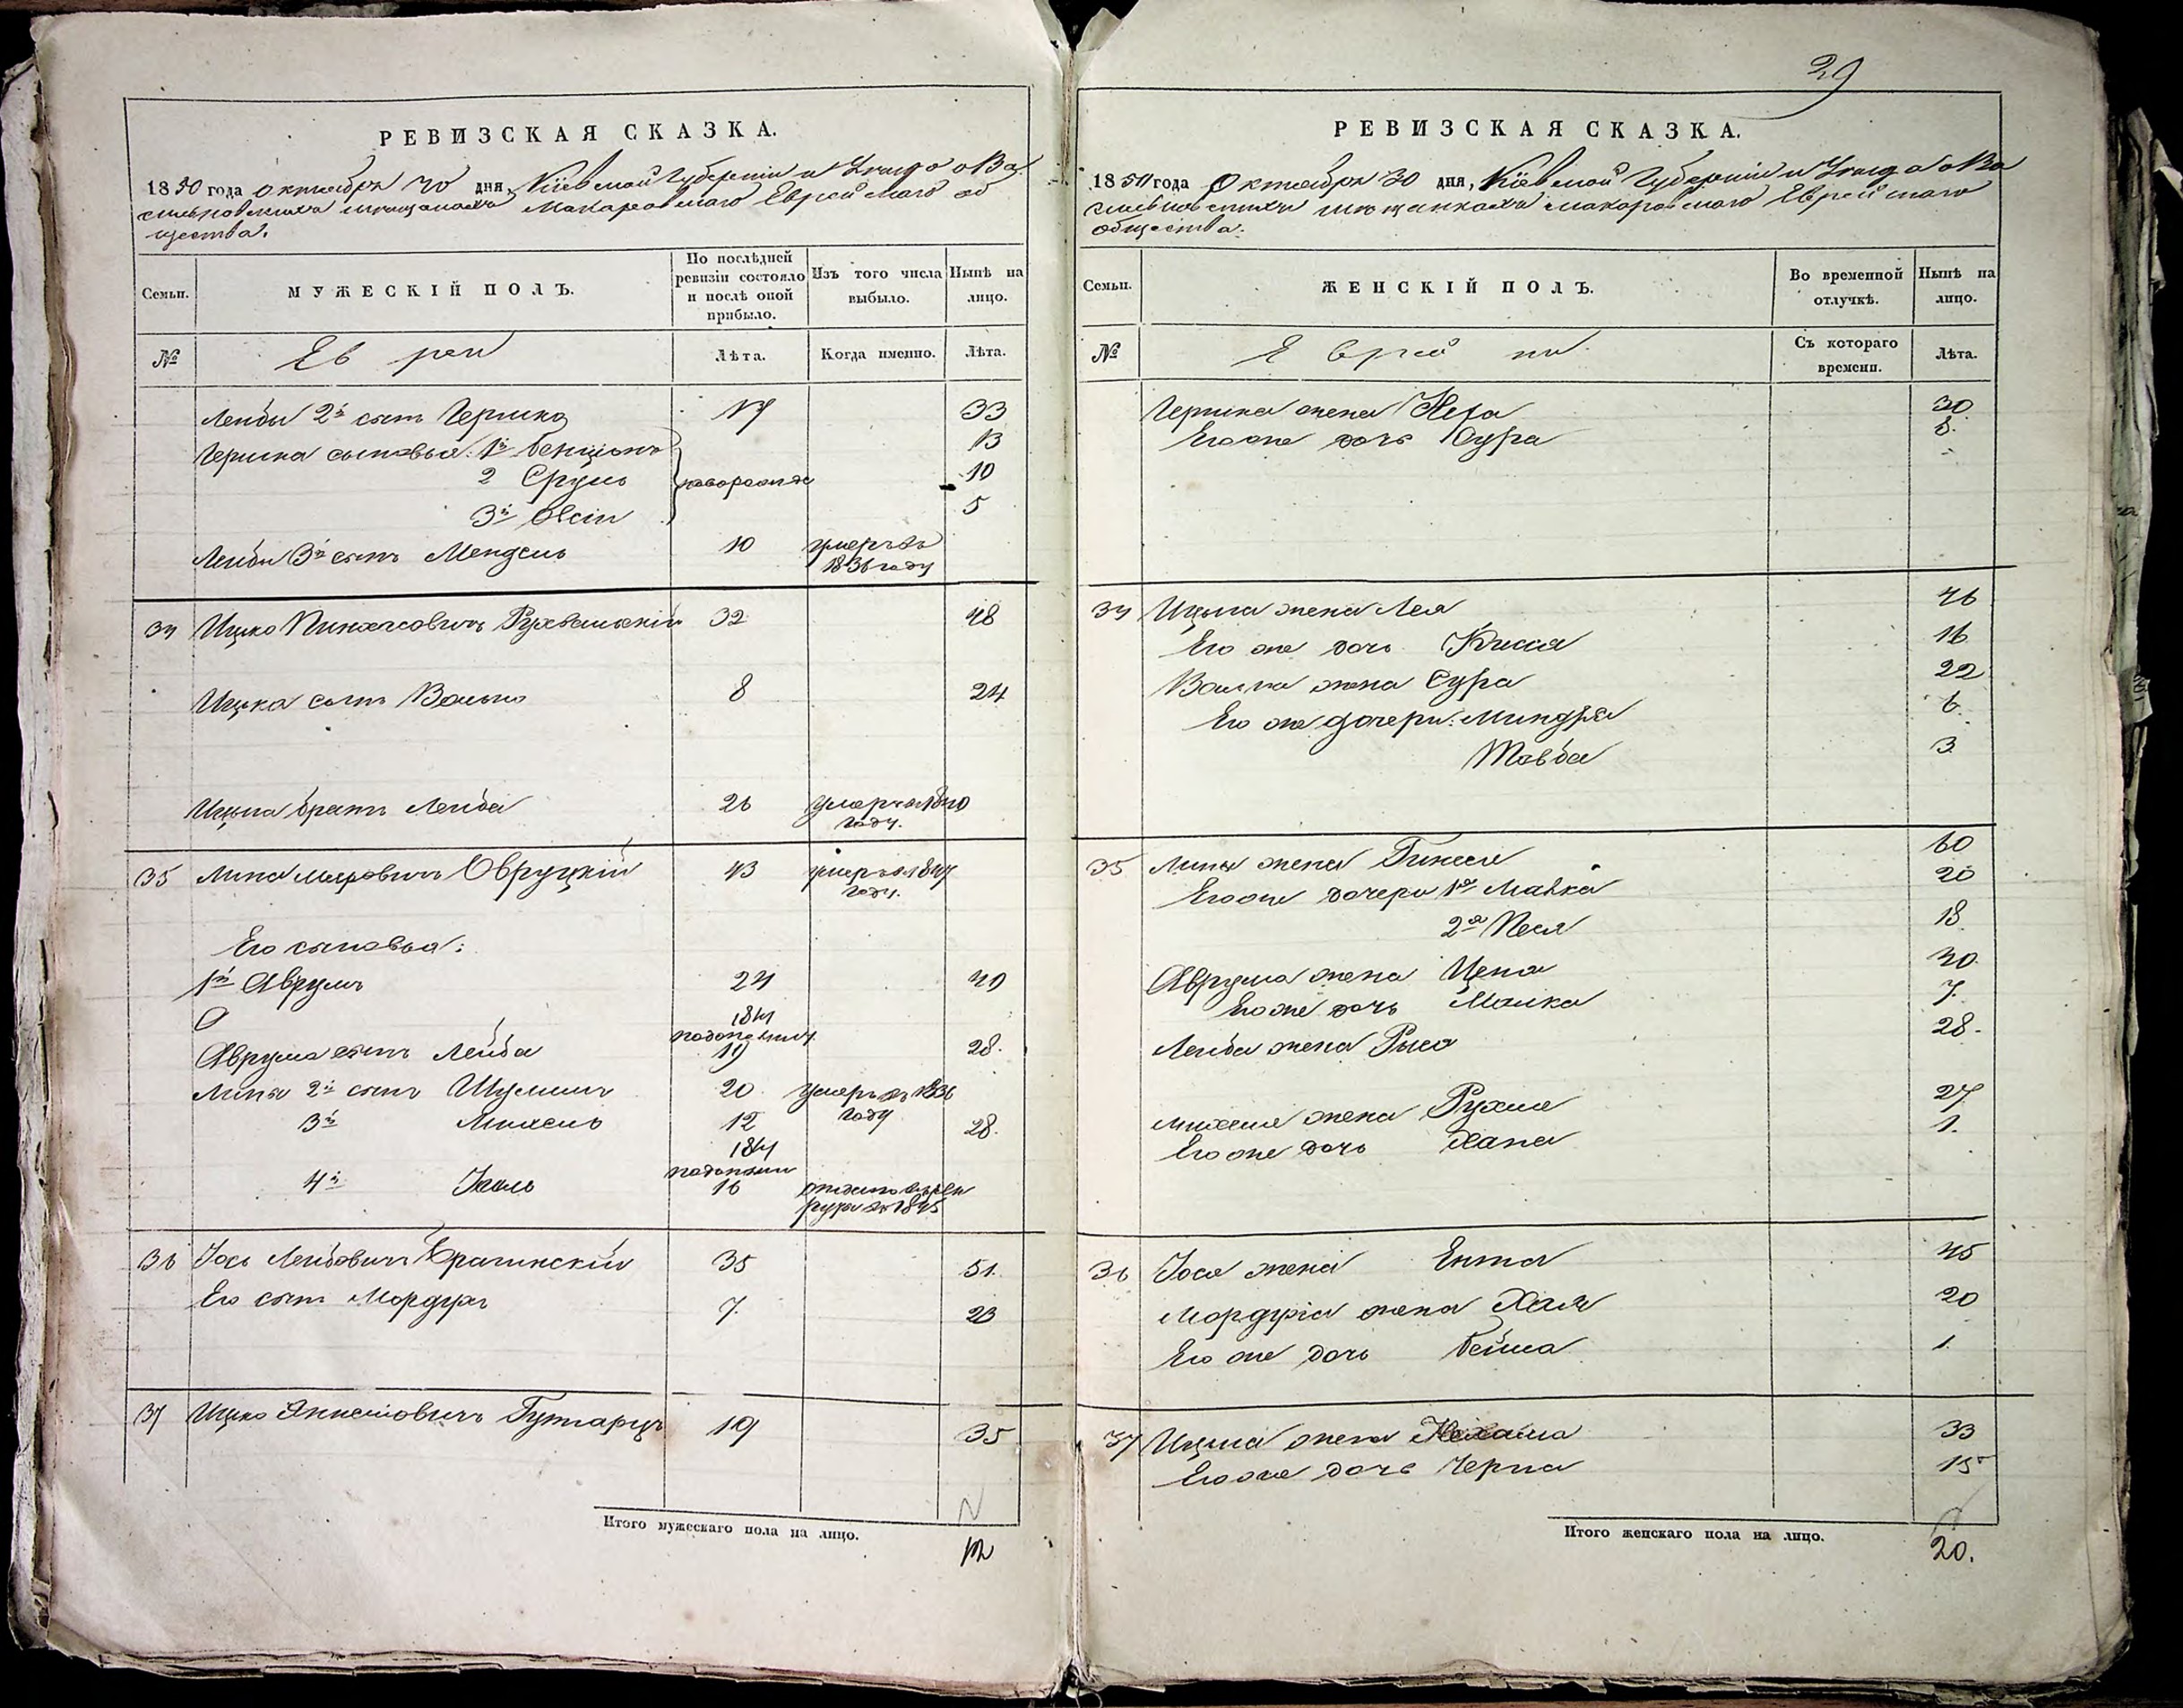 29
РЕВИЗСКАЯ СКАЗКА.
1850 года октября 30 дня, Кіевской Губерніи и Уѣзда о Ва
сильковскихъ мѣщанахъ Макаровскаго Еврейскаго об
щества.
Семьи.
МУЖЕСКІЙ ПОЛЪ.
По послѣдней ревизіи состояло и послѣ оной прибыло.
Изъ того числа выбыло.
Нынѣ на лицо.
№
Евреи
Лѣта.
Когда именно.
Лѣта.
Лейбы 2й сынъ Гершко 17 33
Гершка сыновья: 1й Бенціонъ 13
2 Сруль новорожде 10
3й 5
Лейбы 3й сынъ Мендель 10 умеръ въ
1836 году
34 Ицко Пинхасовичъ 32 48
Ицка сынъ Волько 8 24
Ицка братъ Лейба 26 умеръ въ 1840
году.
35 Липа Меровичъ Овруцкій 43 умеръ въ 1847
году.
Его сыновья:
1й Аврумъ 24 40
1841
Аврума сынъ Лейба 19 28.
Липы 2й сынъ Шулимъ 20 умеръ въ 1836
году
3й Михель 12 28.
1841
4й Хаимъ 16 отданъ въ рек
руты въ 1845
36 Іось Лейбовичъ Брагинскій 35 51.
Его сынъ Мордухъ 7. 23
37 Ицко Янкелiовичъ Гутарцъ 19 35
Итого мужескаго пола на лицо.
12
РЕВИЗСКАЯ СКАЗКА.
1850 года Октября 30 дня, Кіевской Губерніи и Уѣзда о Ва
сильковскихъ мѣщанкахъ Макаровскаго Еврейскаго
общества.
Семьи.
ЖЕНСКІЙ ПОЛЪ.
Во временной отлучкѣ.
Нынѣ на лицо.
№
Еврейки.
Съ котораго времени.
Лѣта.
Гершка жена 30.
Его же дочь Сура 8.
34 Ицька жена Лея 46
Его же дочь 16
Волька жена Сура 22
Его же дочери: Миндля 6.
Товба 3
35 Липы жена Гинеся 60
Его же дочери 1я Малка 20
2я Песя 18.
Аврума жена Цепа 40.
Его же дочь Малка 7.
Лейба жена Рыся 28.
Михеля жена Рухля 27
Его же дочь Хана 1.
36 Іося жена Ента 45
Мордухiа жена Хая 20
Его же дочь Бейла 1.
37 Ицька жена Нехама 33
Его же дочь Черна 15
Итого женскаго пола на лицо.
20.